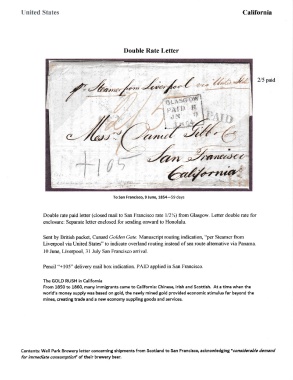 United States
California
Double Rate Letter
pr Steamer from Liverpool via United States
2/5 paid
GLASGOW
PAID
JN
1854
PAID
Messrs Daniel Gibb & Co
San Francisco
California
+105
To San Francisco, 9 June, 1854—59 days
Double rate paid letter (closed mail to San Francisco rate 1/2½) from Glasgow. Letter double rate for
enclosure. Separate letter enclosed for sending onward to Honolulu.
Sent by British packet, Cunard Golden Gate. Manuscript routing indication, "per Steamer from
Liverpool via United States" to indicate overland routing instead of sea route alternative via Panama.
10 June, Liverpool, 31 July San Francisco arrival.
Pencil "+105" delivery mail box indication. PAID applied in San Francisco.
The GOLD RUSH in California
From 1850 to 1860, many immigrants came to California: Chinese, Irish and Scottish. At a time when the
world's money supply was based on gold, the newly mined gold provided economic stimulus far beyond the
mines, creating trade and a new economy supplying goods and services.
Contents: Well Park Brewery letter concerning shipments from Scotland to San Francisco, acknowledging "considerable demand
for immediate consumption" of their brewery beer.